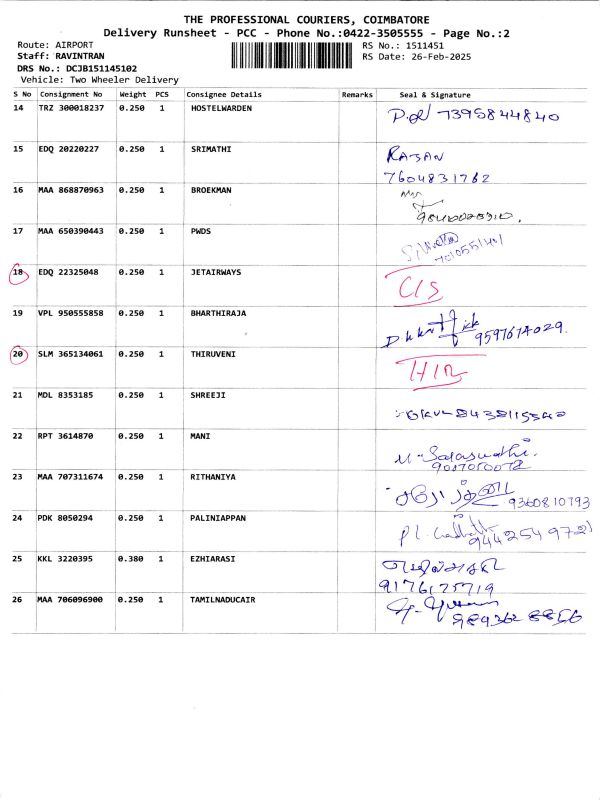 THE PROFESSIONAL COURIERS, COIMBATORE
Delivery Runsheet - PCC - Phone No.:0422-3505555 - Page No.:2
Route: AIRPORT RS No.: 1511451
Staff: RAVINTRAN RS Date: 26-Feb-2025
DRS No.: DCJB151145102
Vehicle: Two Wheeler Delivery
S No Consignment No Weight PCS Consignee Details Remarks Seal & Signature
14 TRZ 300018237 0.250 1 HOSTELWARDEN 7395844840
15 EDQ 20220227 0.250 1 SRIMATHI RAJAN
7604831762
16 MAA 868870963 0.250 1 BROEKMAN
17 MAA 650390443 0.250 1 PWDS
7010551401
18 EDQ 22325048 0.250 1 JETAIRWAYS C/S
19 VPL 950555858 0.250 1 BHARTHIRAJA 9597674029
20 SLM 365134061 0.250 1 THIRUVENI
21 MDL 8353185 0.250 1 SHREEJI
22 RPT 3614870 0.250 1 MANI
23 MAA 707311674 0.250 1 RITHANIYA 9360810793
24 PDK 8050294 0.250 1 PALINIAPPAN 9442549721
25 KKL 3220395 0.380 1 EZHIARASI
9176175719
26 MAA 706096900 0.250 1 TAMILNADUCAIR